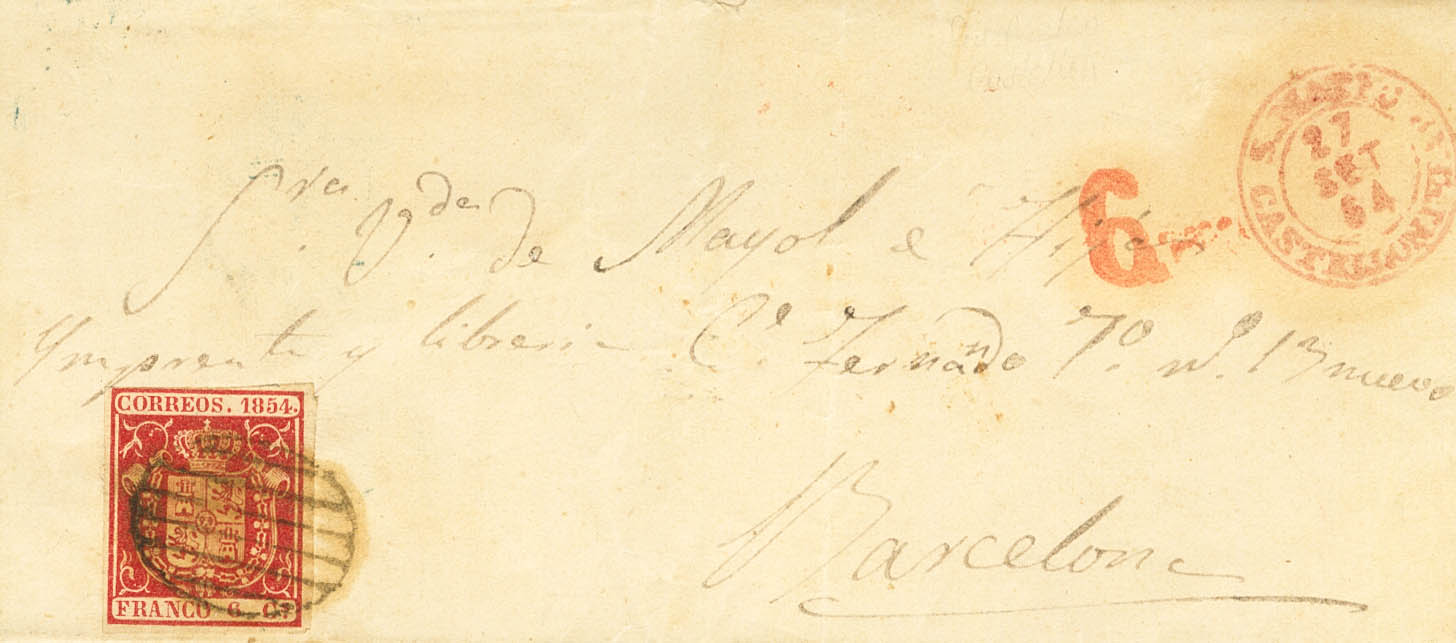 S. MATEO
CASTELLON
27
SET
54
6
Sra. V.da de Mayol e Hijo
Ymprenta y libreria C.e Fernando 7º nº. 13 nuevo
Barcelona
CORREOS. 1854.
FRANCO 6 Cs.